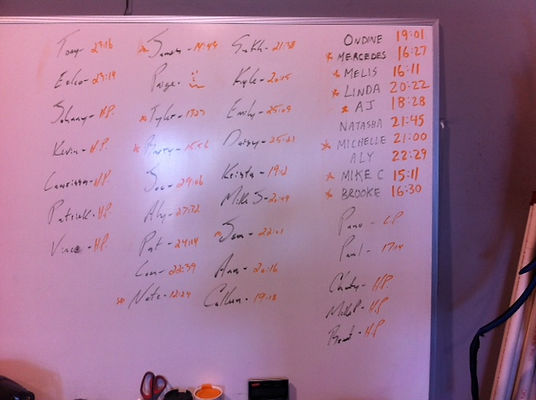 Tony 23:16
Eelco - 23:19
Johnny - H.P.
Kevin - H.P.
H.P.
Patrick - H.P.
Vince - H.P.
* James - 19:43
Paige -
* Tyler - 17:27
* 15:56
Sue - 24:06
Aly - 27:32
Pat - 24:14
22:39
* Nate - 12:24
21:38
Kyle - 20:45
Emily - 25:09
Daisy - 25:21
Krista - 19:12
Mike S - 20:49
Sam - 22:01
Ann - 20:16
Callum - 19:18
ONDINE 19:01
* MERCEDES 16:27
* MELIS 16:11
* LINDA 20:22
* AJ 18:28
NATASHA 21:45
* MICHELLE 21:00
ALY 22:29
* MIKE C 15:11
* BROOKE 16:30
L.P.
Paul - 17:14
H.P.
Mike P - H.P.
Brent - H.P.